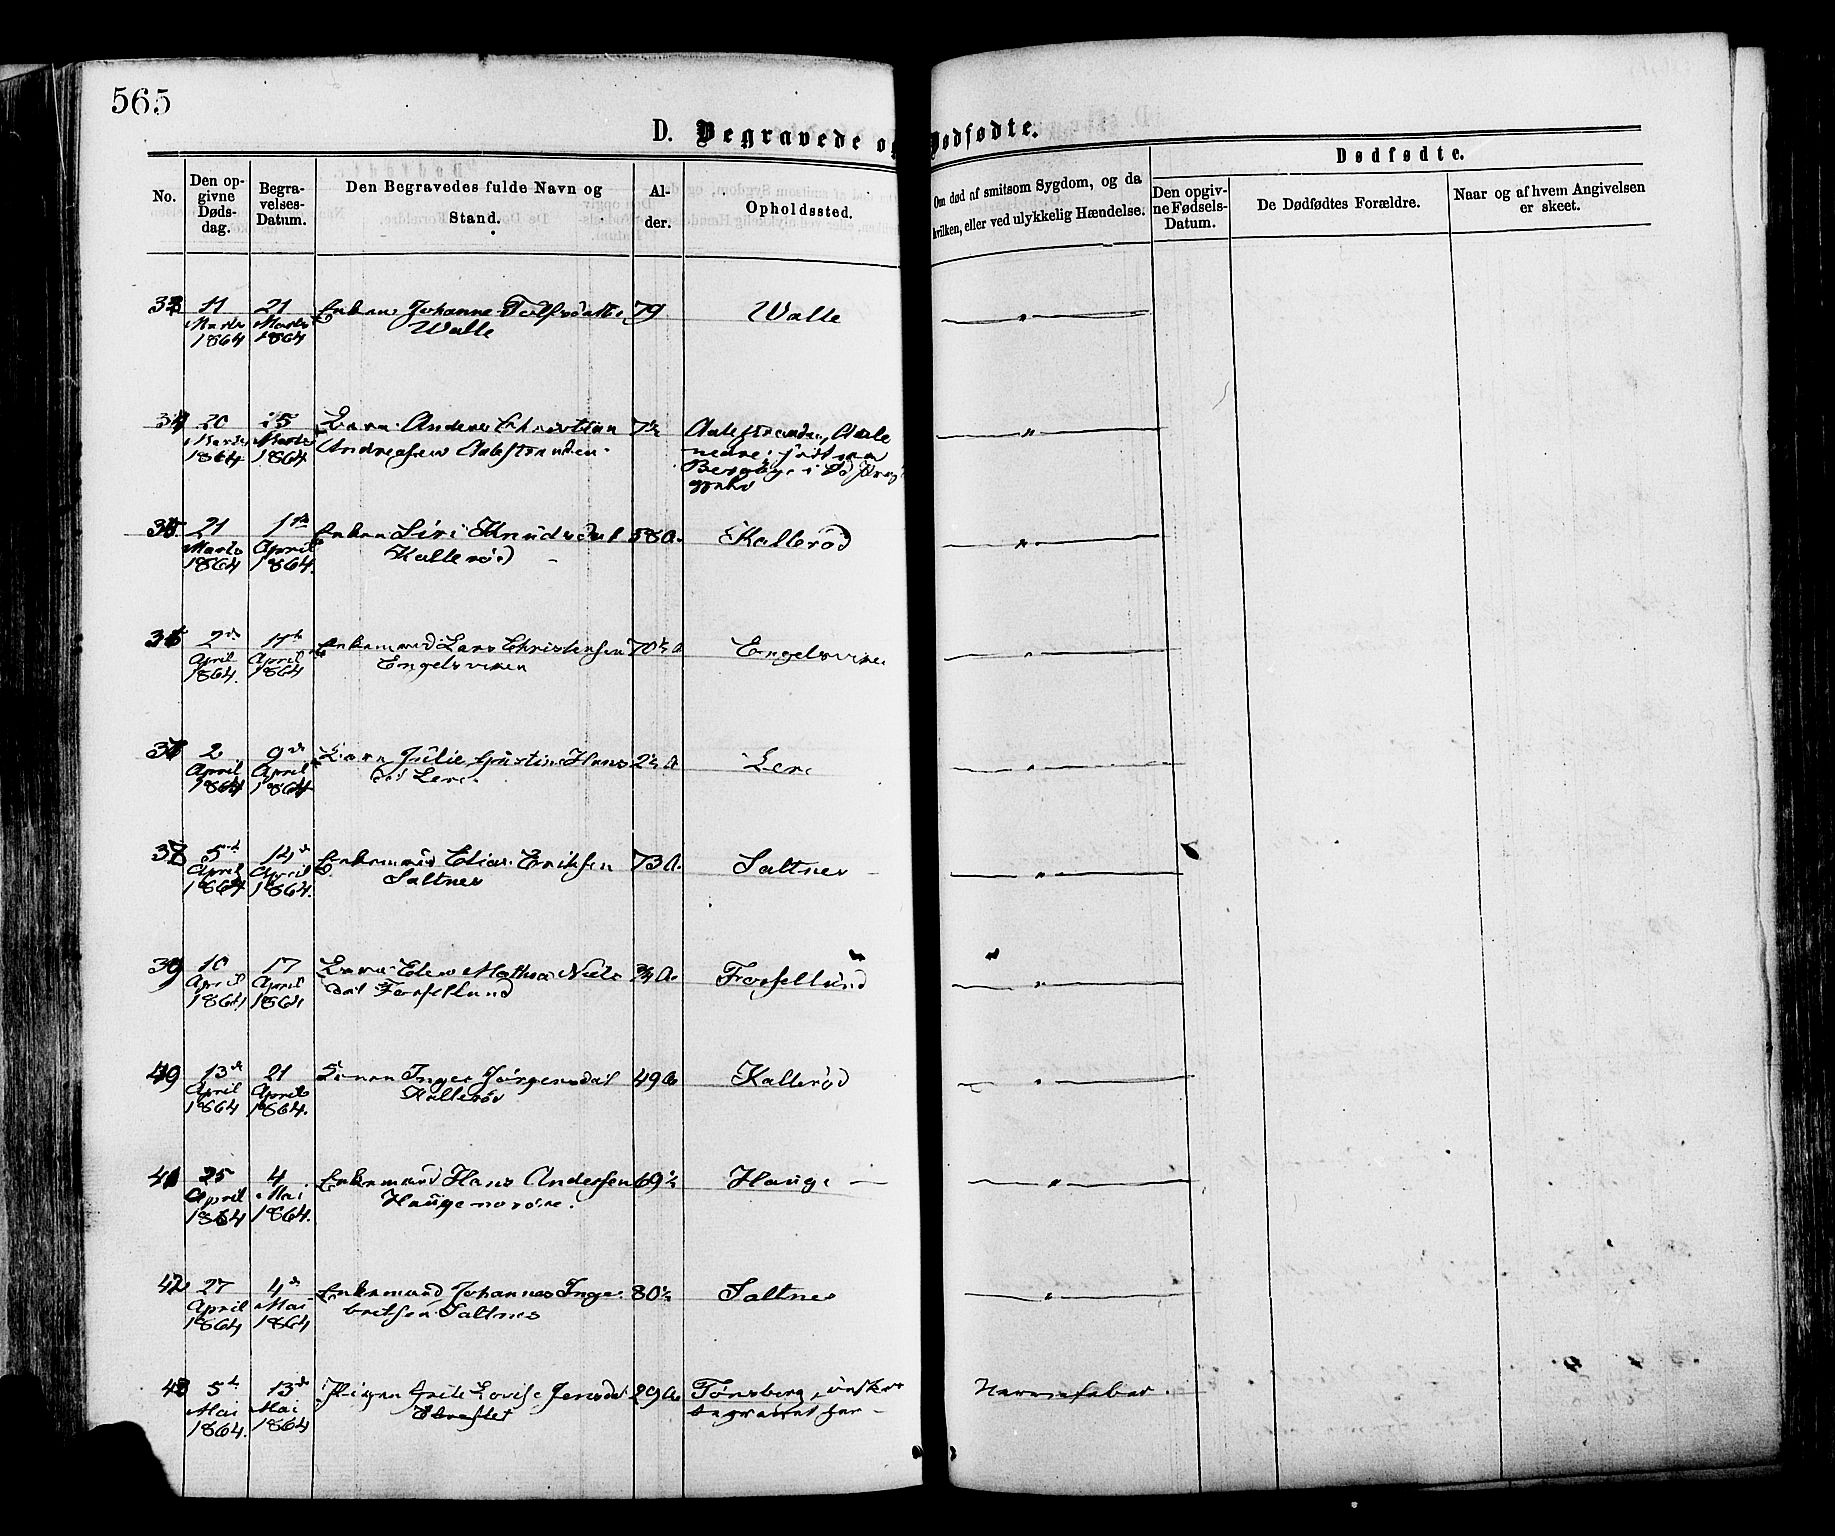 565
D. Begravede og Dødfødte.
No.
Den op-
givne
Døds-
dag.
Begra-
velses-
Datum.
Den Begravedes fulde Navn og
Stand.
Al-
der.
Opholdssted.
Om død af smitsom Sygdom, og da
hvilken, eller ved ulykkelig Hændelse.
Dødfødte.
Den opgiv-
ne Fødsels-
Datum.
De Dødfødtes Forældre.
Naar og af hvem Angivelsen
er skeet.
33 11 Marts 1864 21 Marts 1864 Enken Johanne 79 Walle
Walle
34 20 Marts 1864 25 Marts 1864 Barn Anders Christian 7½
Andreasen Aalestranden
35 21 Marts 1864 1ste April 1864 Enken Siri Knudsdat 58 A. Kallerød
Kallerød
36 2den April 1864 April 1864 Enkemand Lars Christensen 70½ A Engelsviken
Engelsviken
2 April 1864 9de April 1864 Barn Julie Hans 2½ A Lere
dat Lere
5te April 1864 14de April 1864 Enkemand Elias Eriksen 73 A. Saltnes
Saltnes
39 10 April 1864 17 April 1864 Barn Mathea Niels ¾ A Forsetlund
dat Forsetlund
40 13de April 1864 21 April 1864 Konen Inger Jørgensdat 49 A Kallerød
Kallerød
41 25 April 1864 4 Mai 1864 Enkemand Hans Andersen 69½ Hauge
Hauge
42 27 April 1864 4de Mai 1864 Enkemand Johannes Inge 80½ Saltnes
britsen Saltnes
43 5te Mai 1864 13de Mai 1864 Pigen Lovise Jensdat 29 A Tønsberg, ønsket Nervefeber
begravet her